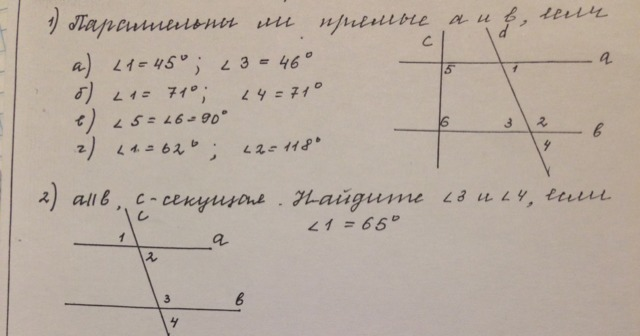 1) Параллельны ли прямые a и b, если
а) ∠1 = 45°; ∠3 = 46°
б) ∠1 = 71°; ∠4 = 71°
в) ∠5 = ∠6 = 90°
г) ∠1 = 62°; ∠2 = 118°
c d
5 1 a
6 3 2 b
4
2) a∥b, c-секущая. Найдите ∠3 и ∠4, если
∠1 = 65°
c
1 a
2
3 b
4